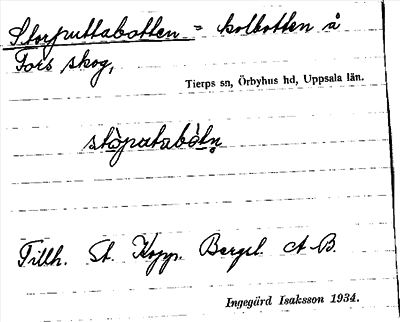 Storputtabotten = kolbotten å
Fors skog,
Tierps sn, Örbyhus hd, Uppsala län.
Tillh. St. Kopp. Bergsl. A-B.
Ingegärd Isaksson 1934.